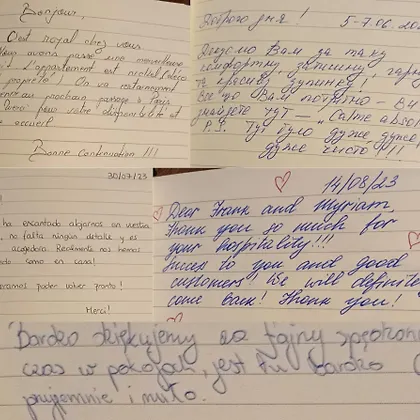 Bonjour,
C'est royal chez vous.
Nous avons passé une merveilleuse
L'appartement est nickel (déco
propreté). On va certainement
prochain passage à Paris
pour votre disponibilité et
accueil
Bonne Continuation !!!
Доброго дня! 5-7.06.20
Дякуємо Вам за таку
комфортну, затишну, гарну
та красиву зупинку!
Все що Вам потрібно - Ви
знайдете тут - "Calme absol
P.S. Тут було дуже, дуже,
дуже чисто!!!
30/07/23
ha encantado alojarnos en vuestra
no falta ningún detalle y es
acogedora. Realmente nos hemos
como en casa!
poder volver pronto!
Merci!
14/08/23
Dear Frank and Myriam,
Thank you so much for
your hospitality!!!
to you and good
customers! We will definite
come back! Thank you!
Bardzo dziękujemy za fajny spędzony
czas w pokojach, jest tu bardzo
przyjemnie i miło.